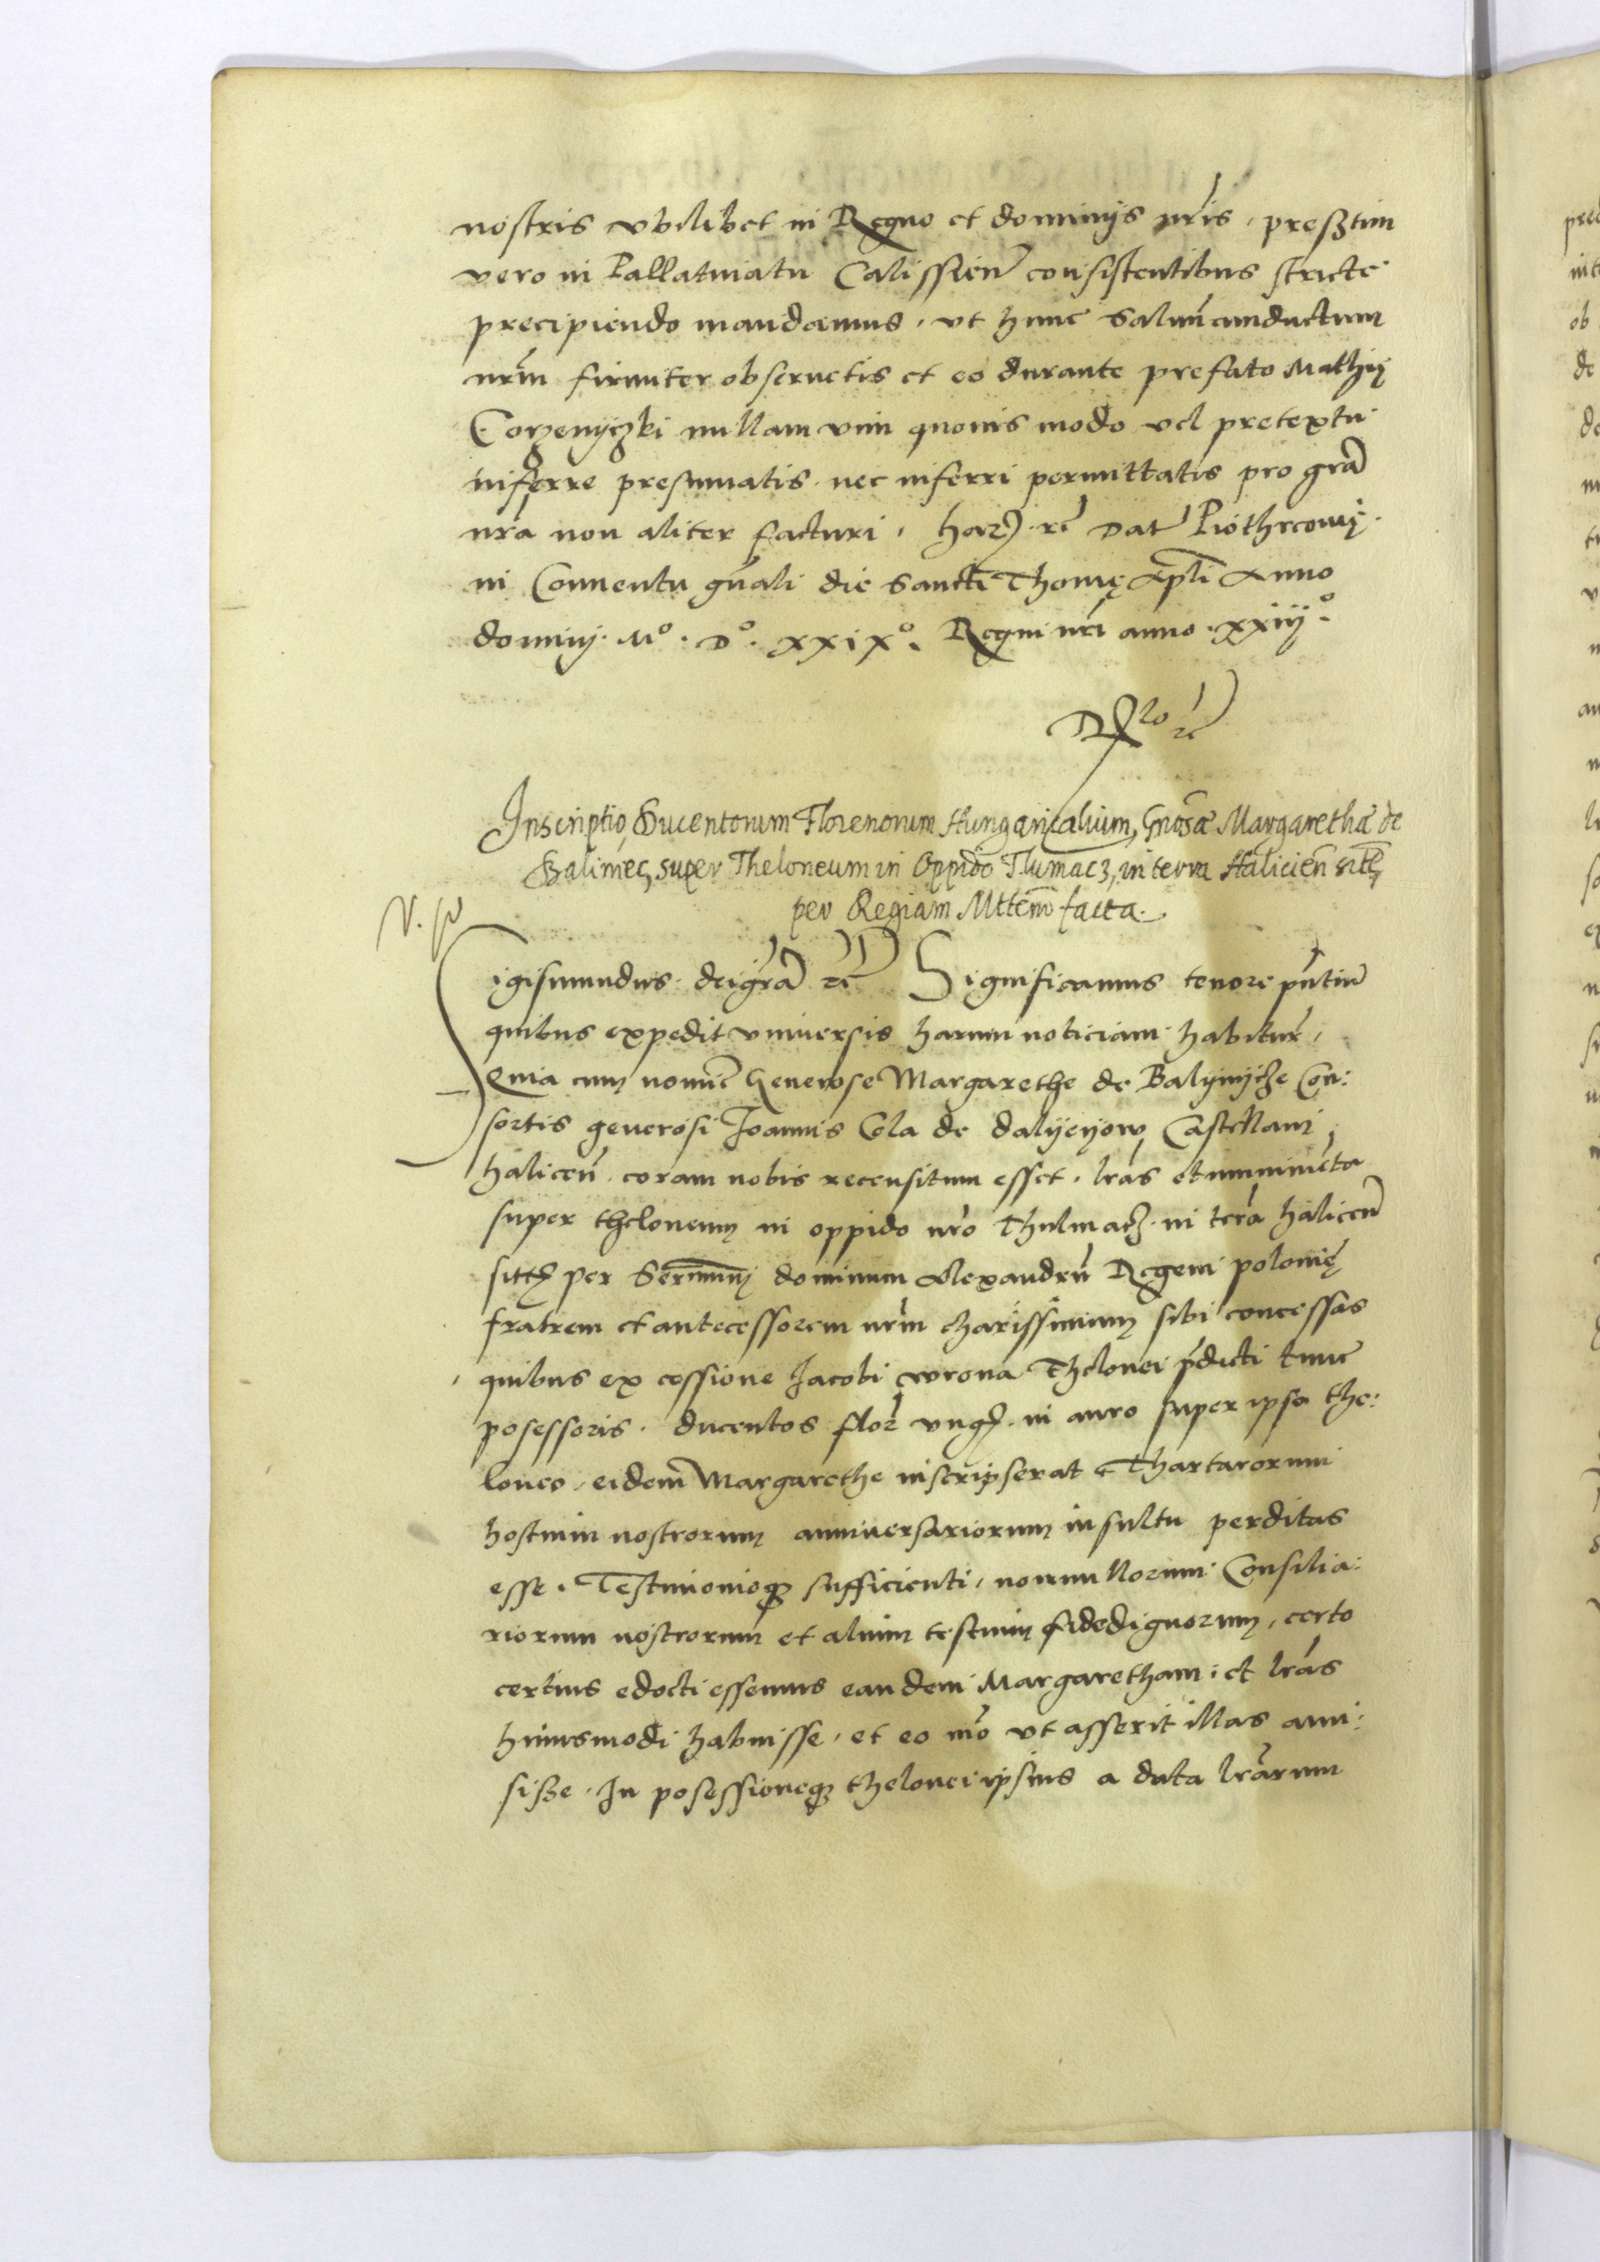 nostris vbilibet in Regno et dominijs nris, presertim
vero in Pallatinatu Calissien consistentibus stricte
precipiendo mandamus, vt hunc saluumconductum
nrm firmiter obseruetis et eo durante prefato Mathie
Corzenyczki nullam vim quouis modo vel pretextu
inferre presumatis nec inferri permittatis pro gra
nra non aliter facturi, harz. rc Dat Piothrcowie
in Conuentu gnali die Sancti Thomę Apli Anno
dominij. Mo. Do. xxixo. Regni nri anno. xxiijo
Rlo rc
Inscriptio Ducentorum Florenorum Hungaricalium, Gnosæ Margarethæ de
Baliniec, super Theloneum in Oppido Tlumacz, in terra Halicien site,
per Regiam Mttem facta.
Sigismundus dei gra rc Significamus tenore pntium
quibus expedit vniuersis harum noticiam habitur,
Quia cum nomine Generose Margarethe de Balijnijcze Con:
sortis generosi Joannis Cola de dalijeijow Castellani
halicen. coram nobis recensitum esset, lras et munimenta
super theloneum in oppido nro Thulmacz. in terra halicen
sitt per Sermum dominum Alexandrum Regem polonię
fratrem et antecessorem nrm charissimum sibi concessas
quibus ex cessione Jacobi wrona Thelonei pdicti tunc
posessoris. ducentos flor vng. in auro super ipso the:
loneo, eidem Margarethe inscripserat Thartarorum
hostium nostrorum anniuersariorum insultu perditas
esse. Testimonioq sufficienti, nonnullorum Consilia:
riorum nostrorum et alium testium fidedignorum, certo
certius edocti essemus eandem Margaretham et lras
huiusmodi habuisse, et eo mo vt asserit illas ami:
sisse. In posessioneq thelonei ipsius a data lrarum